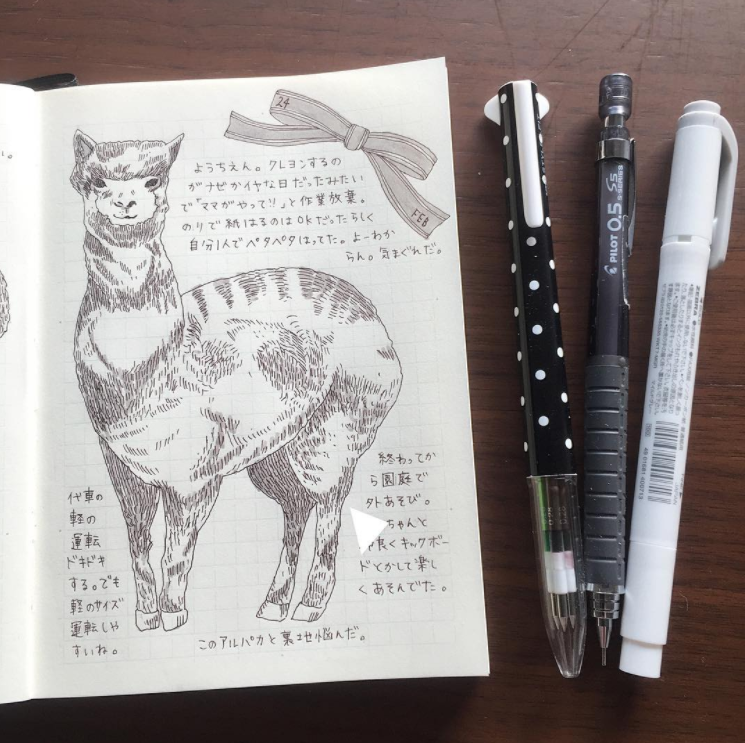 24
FEB
ようちえん。クレヨンするの
がナゼかイヤな日だったみたい
で「ママがやって!!」と作業放棄。
のりで紙はるのはOKだったらしく
自分1人でペタペタはってた。よーわか
らん。気まぐれだ。
終わってか
ら園庭で
外あそび。
ちゃんと
良くキックボー
ドとかして楽し
くあそんでた。
代車の
軽の
運転
ドキドキ
する。でも
軽のサイズ
運転しや
すいね。
このアルパカと裏地悩んだ。
PILOT 0.5 S5
S-SERIES